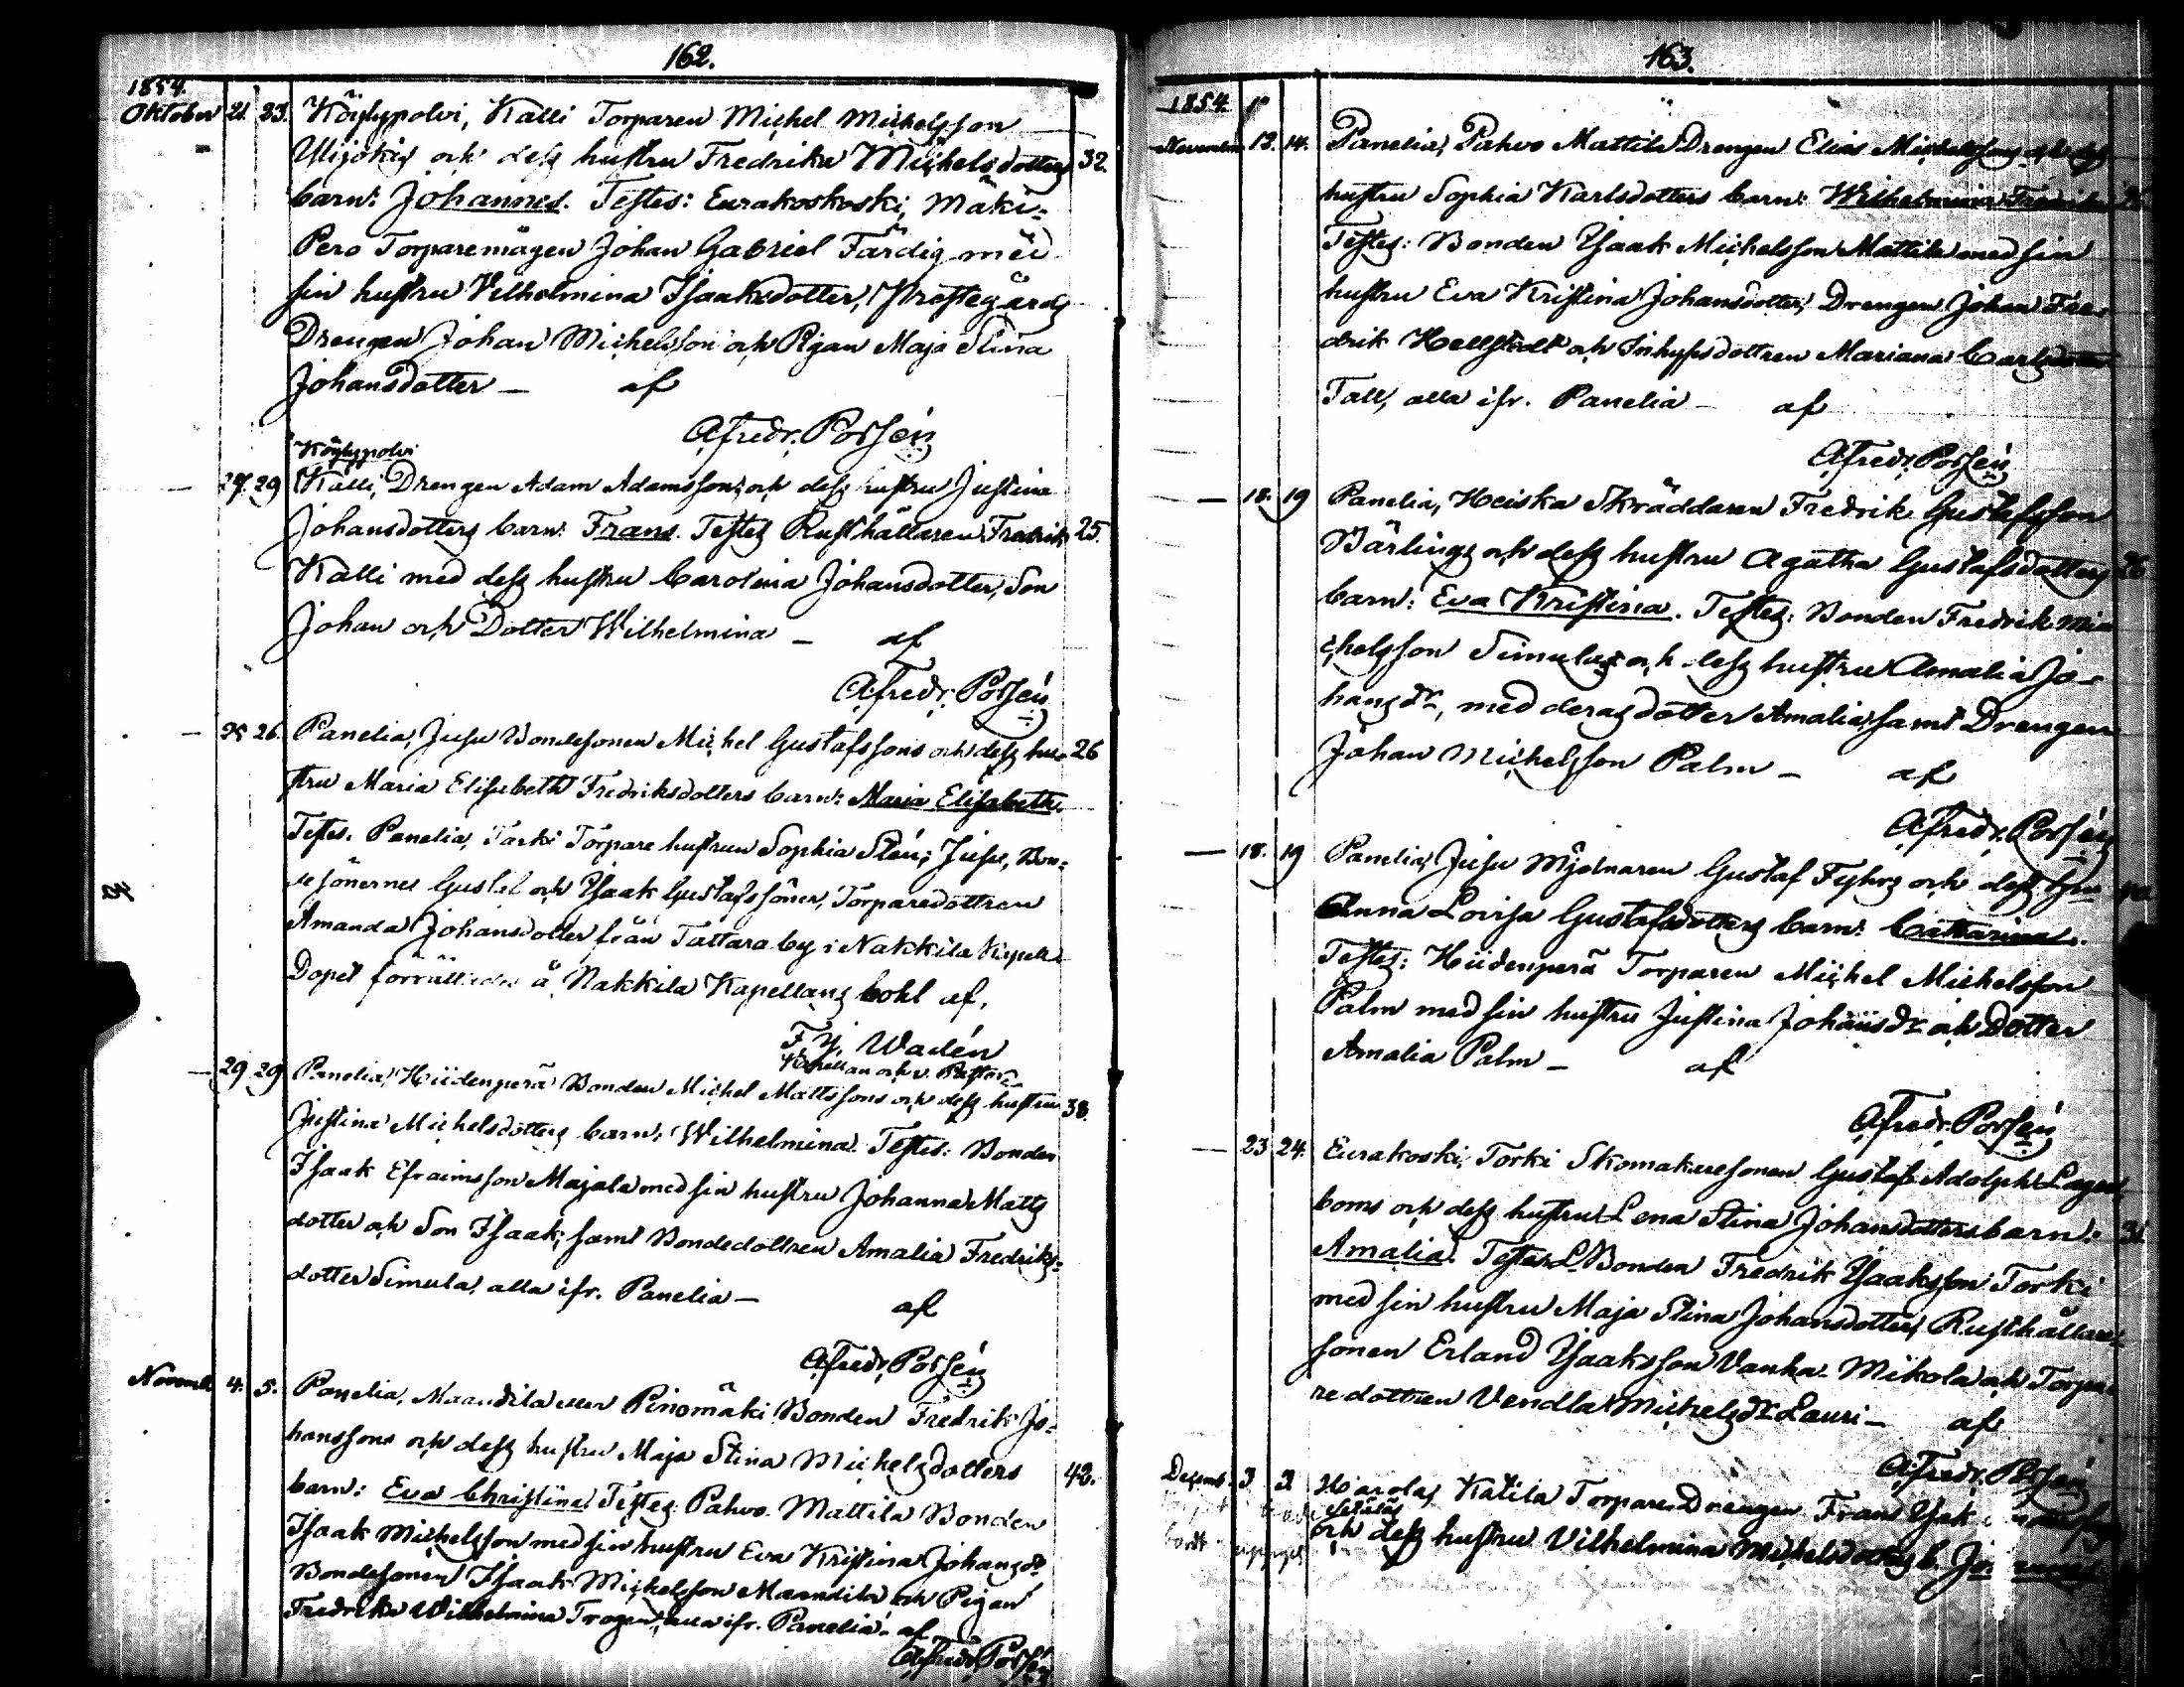 162.
1854.
Oktober 21. 23. Köylypolvi, Källi Torparen Michel Michelsson
Ylijokis och dess hustru Fredrika Michelsdotters 32.
barn: Johannes. Testes: Eurakoskoski, Mäki-
Pero Torparemågen Johan Gabriel Färdig med
sin hustru Vilhelmina Isaaksdotter, Prestegårds
Drengen Johan Michelsson och Pigan Maja Stina
Johansdotter — af
A. Fredr. Porsén
Köylypolvi
— 27. 29 Källi, Drengen Adam Adamssons och dess hustru Justina
Johansdotters barn: Frans. Testes Rusthållaren Fredrik 25.
Källi med dess hustru Carolina Johansdotter, Son
Johan och Dotter Wilhelmina — af
A. Fredr. Porsén
— 25 26. Panelia, Jusu Bondesonen Michel Gustafssons och dess hu- 26
stru Maria Elisabeth Fredriksdotters barn: Maria Elisabeth.
Testes. Panelia, Tarki Torpare hustrun Sophia Stén; Jusu, Bon-
desönernes Gustaf och Ysaak Gustafssöner, Torparedottren
Amanda Johansdotter från Tattara by i Nakkila Kapell.
Dopet förrättades å Nakkila Kapellans bohl af,
F. J. Wadén
Kapellan och v. Pastor
— 29 29 Panelia, Hiidenperä Bonden Michel Mattssons och dess hustru 38.
Justina Michelsdotters barn: Wilhelmina. Testes: Bonden
Isaak Efraimsson Majala med sin hustru Johanna Matts
dotter och Son Isaak; samt Bondedottren Amalia Fredriks-
dotter Simula, alla ifr. Panelia — af
A. Fredr. Porsén
Novemb. 4. 5. Panelia, Maandila eller Pinomäki Bonden Fredrik Jo-
hanssons och dess hustru Maja Stina Michelsdotters 42.
barn: Eva Christina Testes: Pahvo Mattila Bonden
Isaak Michelsson med sin hustru Eva Kristina Johansdr
Bondesonen Isaak Michelsson Maandila och Pigan
Fredrika Wilhelmina Trogen, alla ifr. Panelia — af
A. Fredr. Porsén
163.
1854.
November 12. 14. Panelia, Pahvo Mattila Drengen Elias Michelssons och dess
hustru Sophia Karlsdotters barn: Wilhelmina Fredrika
Testes: Bonden Ysaak Michelsson Mattila med sin
hustru Eva Kristina Johansdotter, Drengen Johan Fre-
drik Hellstedt och Inhysesdottren Mariana Carlsdotter
Tall, alla ifr. Panelia — af
A. Fredr. Porsén
— 18. 19 Panelia, Heiska Skräddaren Fredrik Gustafsson
Bärlings och dess hustru Agatha Gustafsdotters 26
barn: Eva Kristina. Testes: Bonden Fredrik Mi-
chelsson Simula och dess hustru Amalia Jo-
hansdr, med deras dotter Amalia, samt Drengen
Johan Michelsson Palm — af
A. Fredr. Porsén
— 18. 19 Panelia, Jusu Mjölnaren Gustaf Fyhrs och dess hu-
Anna Lovisa Gustafsdotters barn: Catharina.
Testes: Hiidenperä Torparen Michel Michelsson
Palm med sin hustru Justina Johansdr och Dotter
Amalia Palm — af
A. Fredr. Porsén
— 23 24. Eurakoski, Torki Skomakaresonen Gustaf Adolph Lager-
boms och dess hustru Lena Stina Johansdotters barn: 31
Amalia. Testes: L. Bonden Fredrik Ysaaksson Torki
med sin hustru Maja Stina Johansdotter, Rusthållare-
sonen Erland Ysaaksson Vanha-Mikola och Torpa-
redottren Vendla Michelsdr Lauri — af
A. Fredr. Porsén
Decemb. 3 3 Harola, Katila Torpare Drengen Frans
och dess hustru Vilhelmina Michelsdotters b.